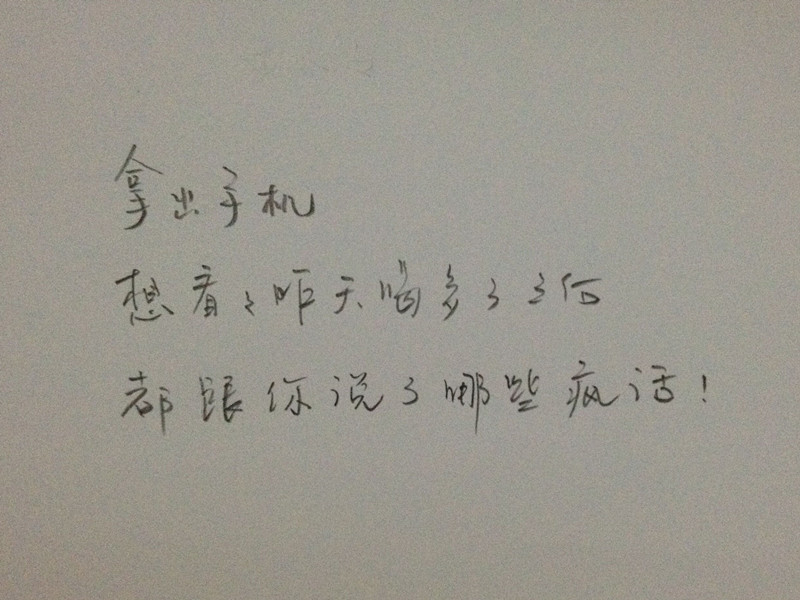 拿出手机
想看看昨天喝多了之后
都跟你说了哪些疯话！